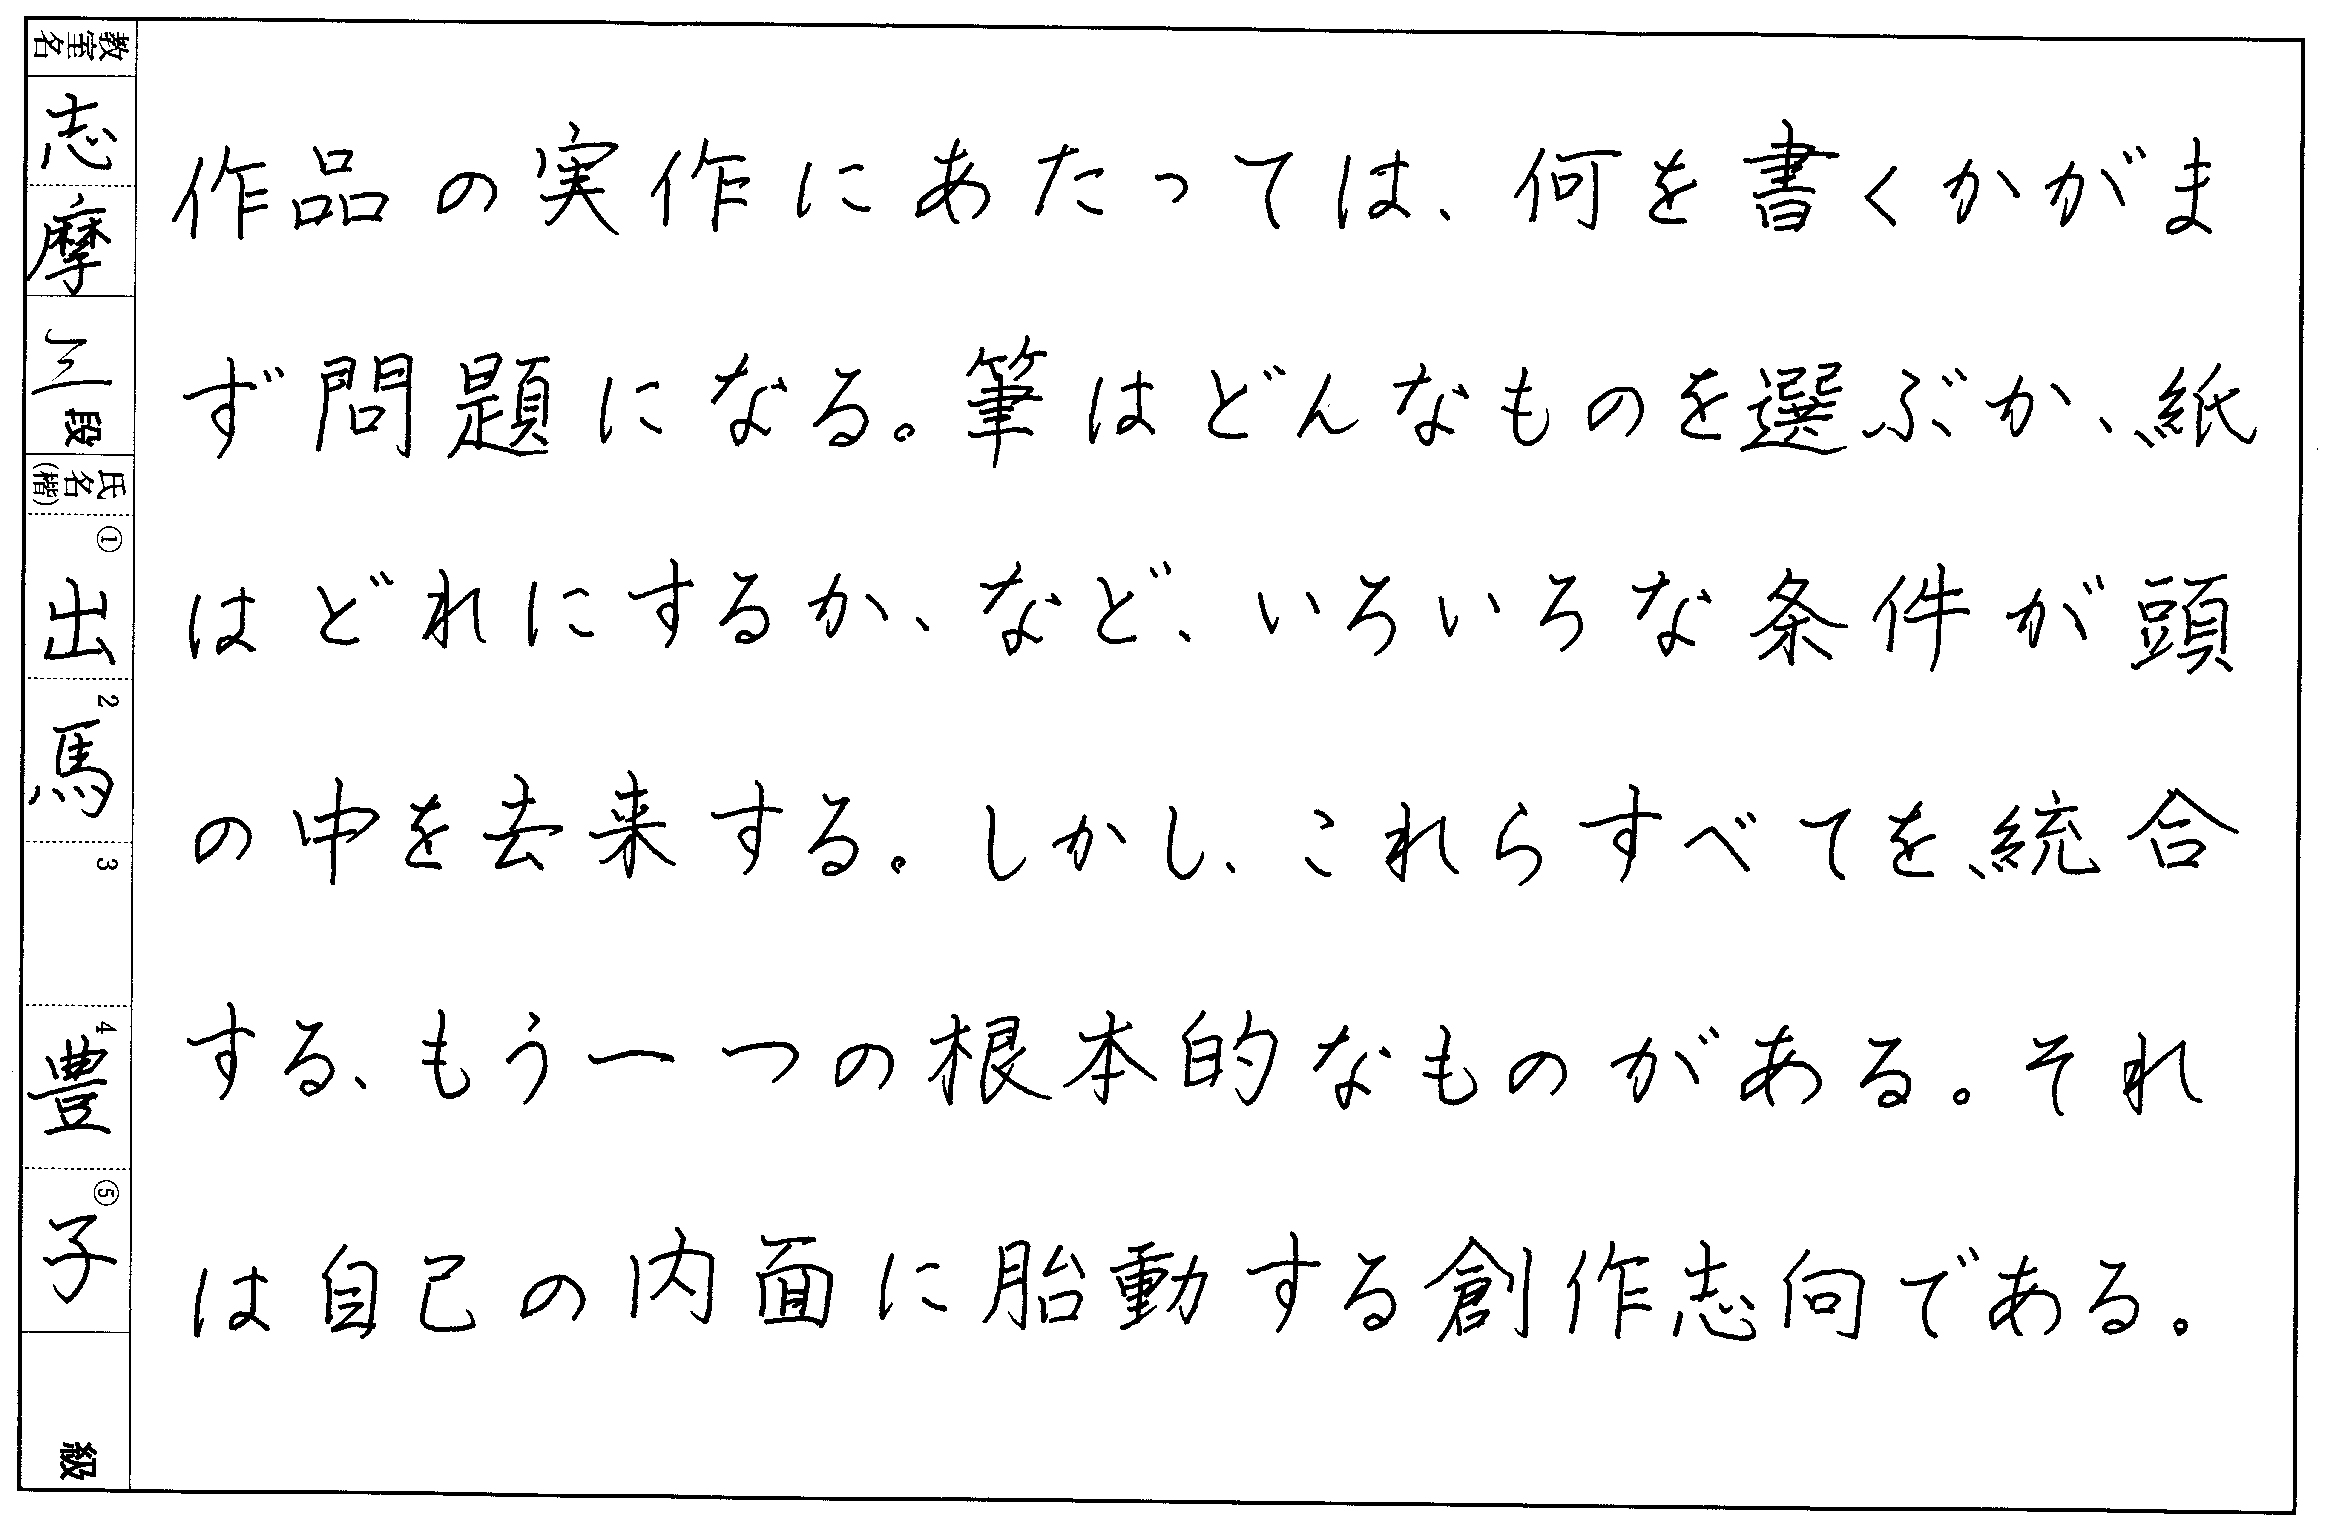 教室名
志摩
三段
氏名(楷)
① 出
2 馬
3
4 豊
⑤ 子
級
作品の実作にあたっては、何を書くかがま
ず問題になる。筆はどんなものを選ぶか、紙
はどれにするか、など、いろいろな条件が頭
の中を去来する。しかし、これらすべてを統合
する、もう一つの根本的なものがある。それ
は自己の内面に胎動する創作志向である。